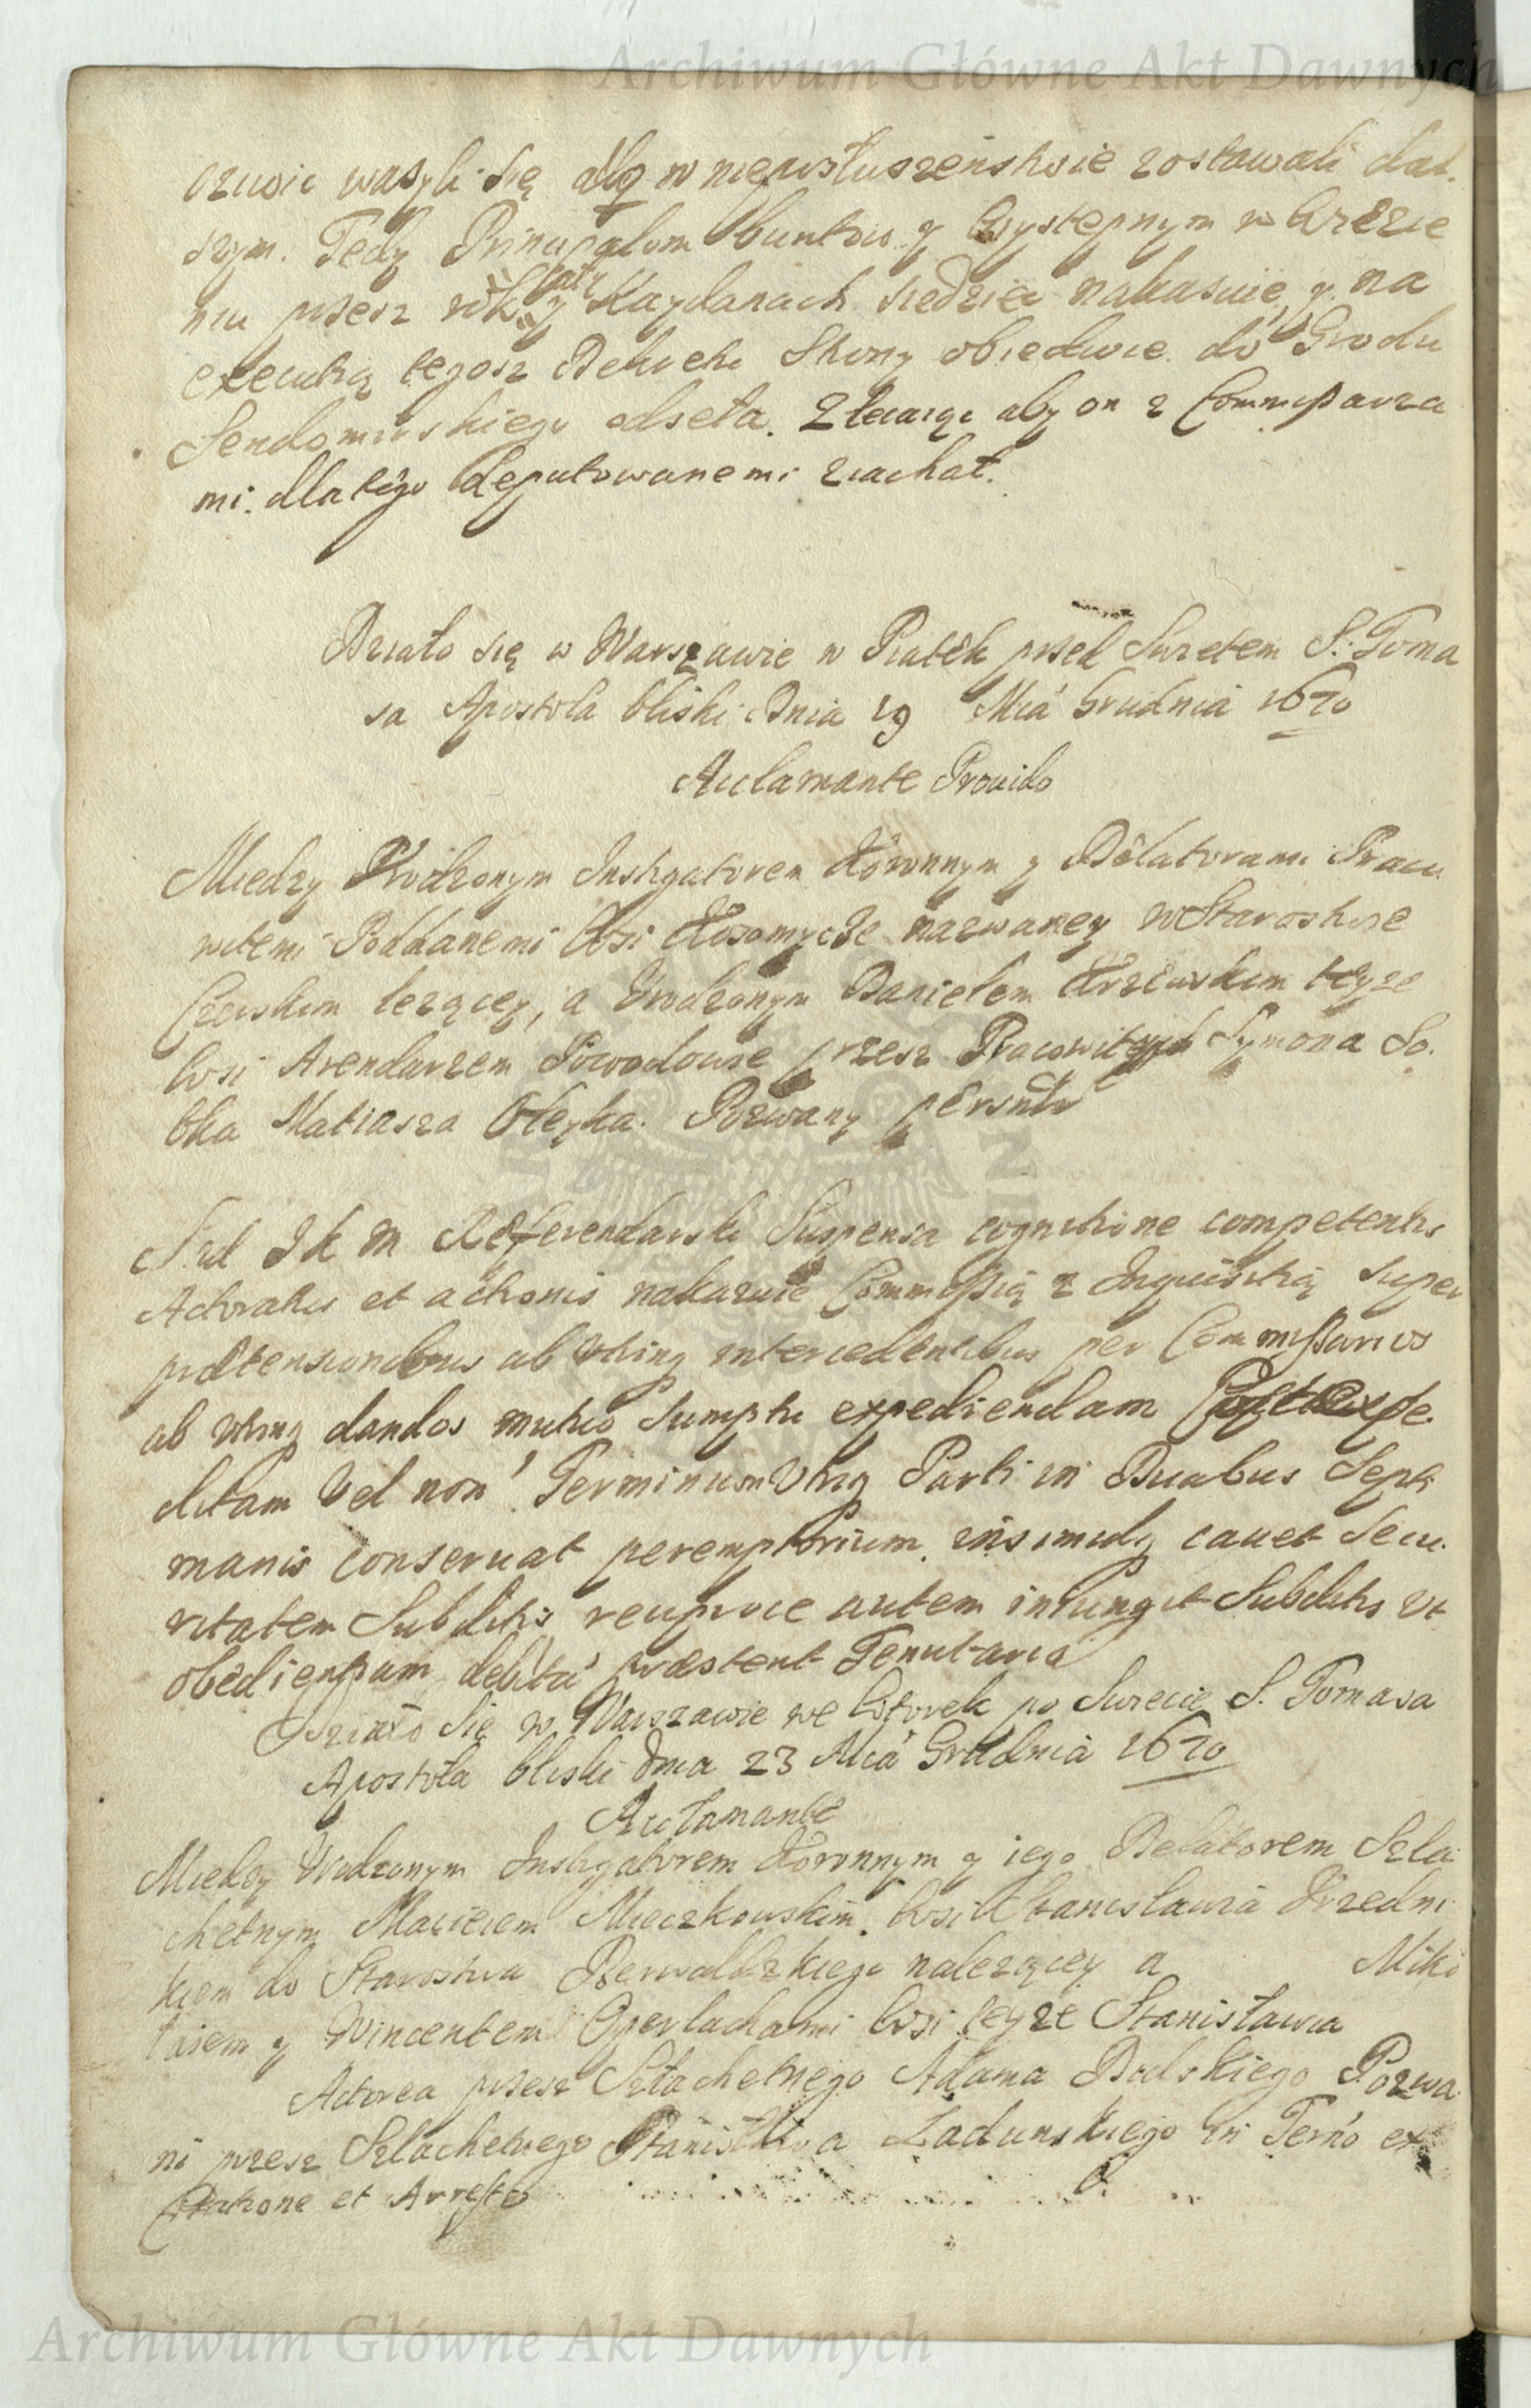 Archiwum Główne Akt Dawnych
wazyli się albo w nieposłuszenstwie zostawali dal
szym. Tedy Principalom buntow y Wystepnym w Wieze
niu przesz rok caly y Kaydanach siedziec nakazuie, y na
executią tegosz Dekretu Strony obiedwie do Grodu
Sendomirskiego odseła. Zlecaiąc aby on z Commissarza
mi dla tego deputowanemi ziachał.
Działo się w Warszawie w Piatek przed Swietem S. Toma
sa Apostola bliski Dnia 19 Mca Grudnia 1670
Acclamante Prouido
Miedzy Vrodzonym Instigatorem Koronnym y Delatorami Praco
witemi Poddanemi Wsi nazwaney w Starostwie
Czerskim lezącey, a Vrodzonym Danielem teyze
Wsi Arendarzem Powodowie przesz Pracowitych Symona So
bka Matiasza Oleyka. Pozwany
Sąd J K M Refferendarski Suspensa cognitione competentis
Actoratus et actionis nakazuie Commissią z Inquisitią super
prætensionibus ab vtrinq intercedentibus per Commissarios
ab vtrinq dandos mutuo sumptu expediendam expe
ditam vel non Terminum Vtriq Parti in Duabus Septi
manis conseruat peremptorium, insimulq cauet Secu
ritatem Subditis reciproce autem iniungit Subditis vt
obedientiam debitã præstent Tenutario
Działo się w Warszawie we Wtorek po Swiecie S. Tomasa
Apostoła bliski Dnia 23 Mca Grudnia 1670
Acclamante
Miedzy Vrodzonym Instigatorem Koronnym y iego Delatorem Szla
chetnym Maciciem Mieczkowskim Wsi Stanisławia Vrzedni
kiem do Starostwa nalezącey a Miko
łaiem y Wincentem Wsi teyze Stanisławia
Actorea przesz Szlachetnego Adama Pozwa
ni przesz Szlachetnego Stanisława Ladunskiego in Terno ex
Citatione et Arresto
Archiwum Główne Akt Dawnych